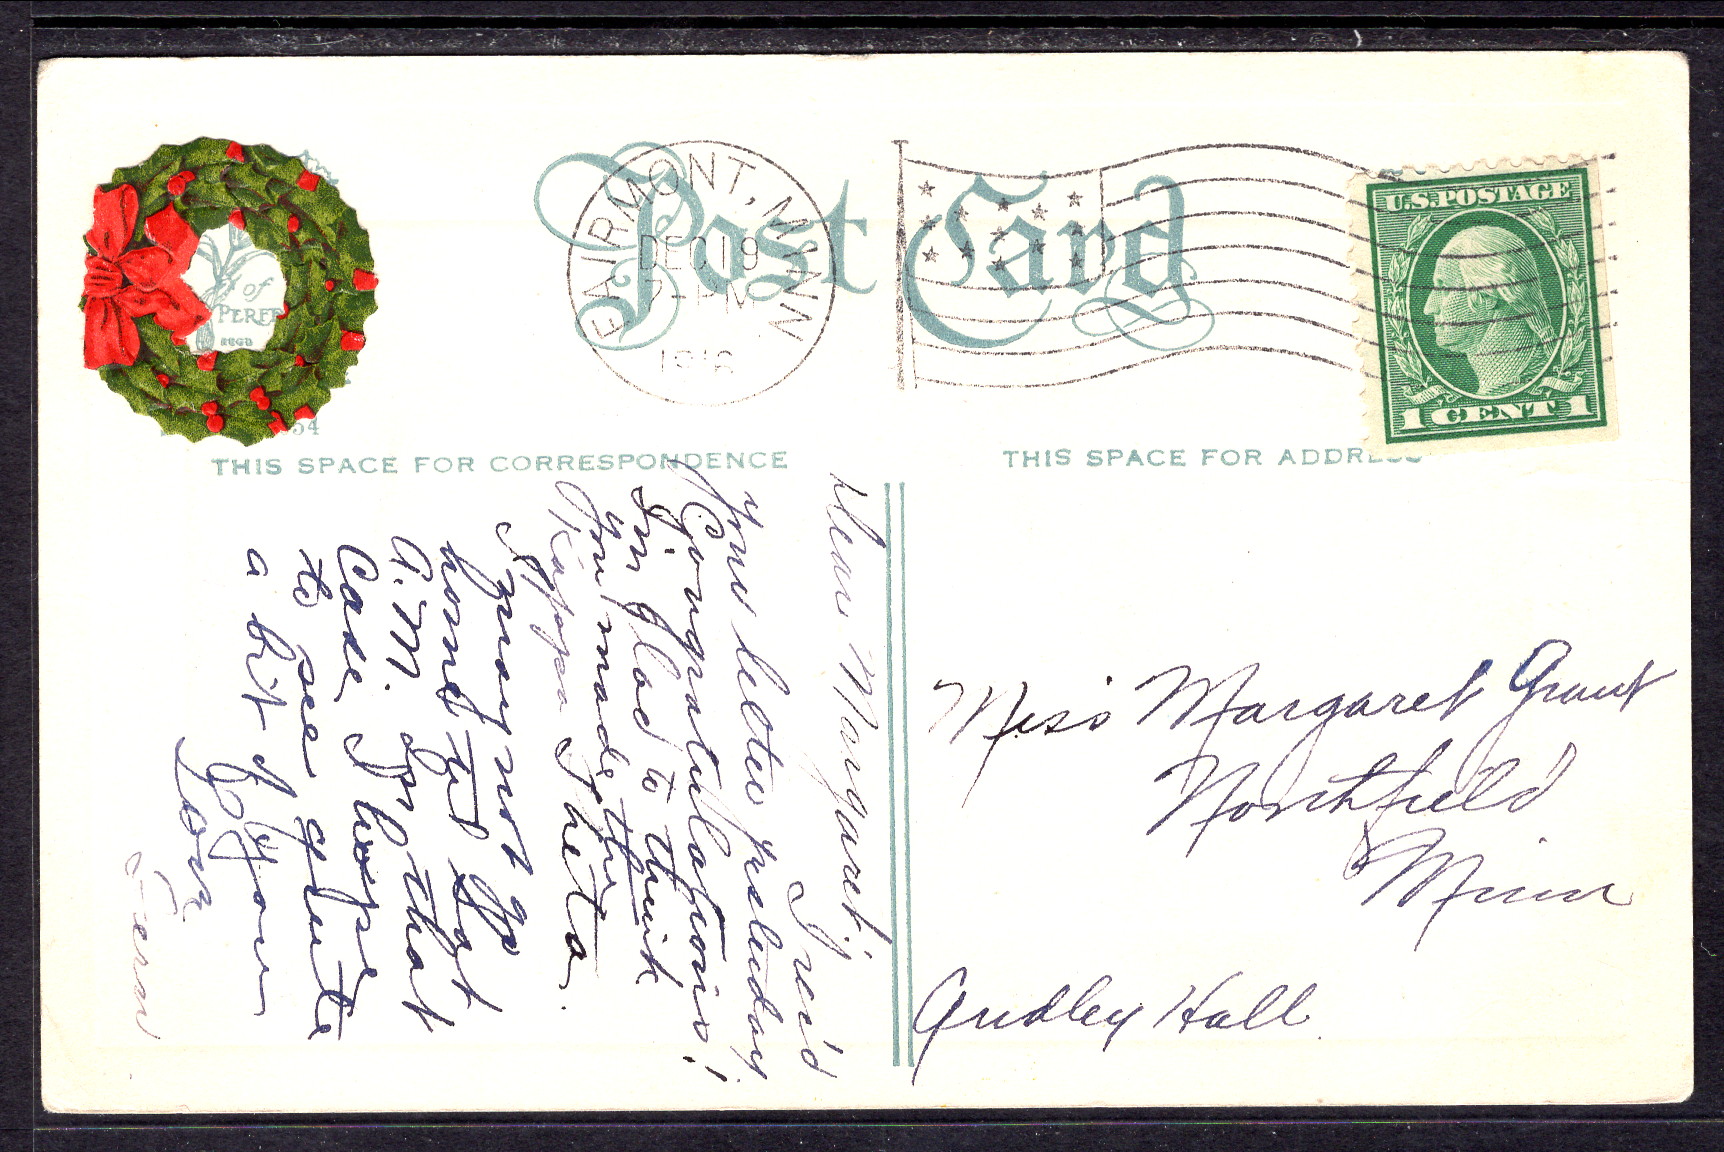 Post Card
FAIRMONT, MINN.
DEC 19
7-PM
1916
U.S. POSTAGE
1 CENT 1
of
PERFE
REGD
54
THIS SPACE FOR CORRESPONDENCE
THIS SPACE FOR ADDRESS
Dear Margaret;
Rec'd
your letter yesterday
Congratulations!
I'm glad to think
you made the
Kappa Theta.
I may not go
home til Sat
A.M. In that
Case I hope
to see quite
a bit of you
Love
Fern
Miss Margaret Grant
Northfield
Minn
Gridley Hall.